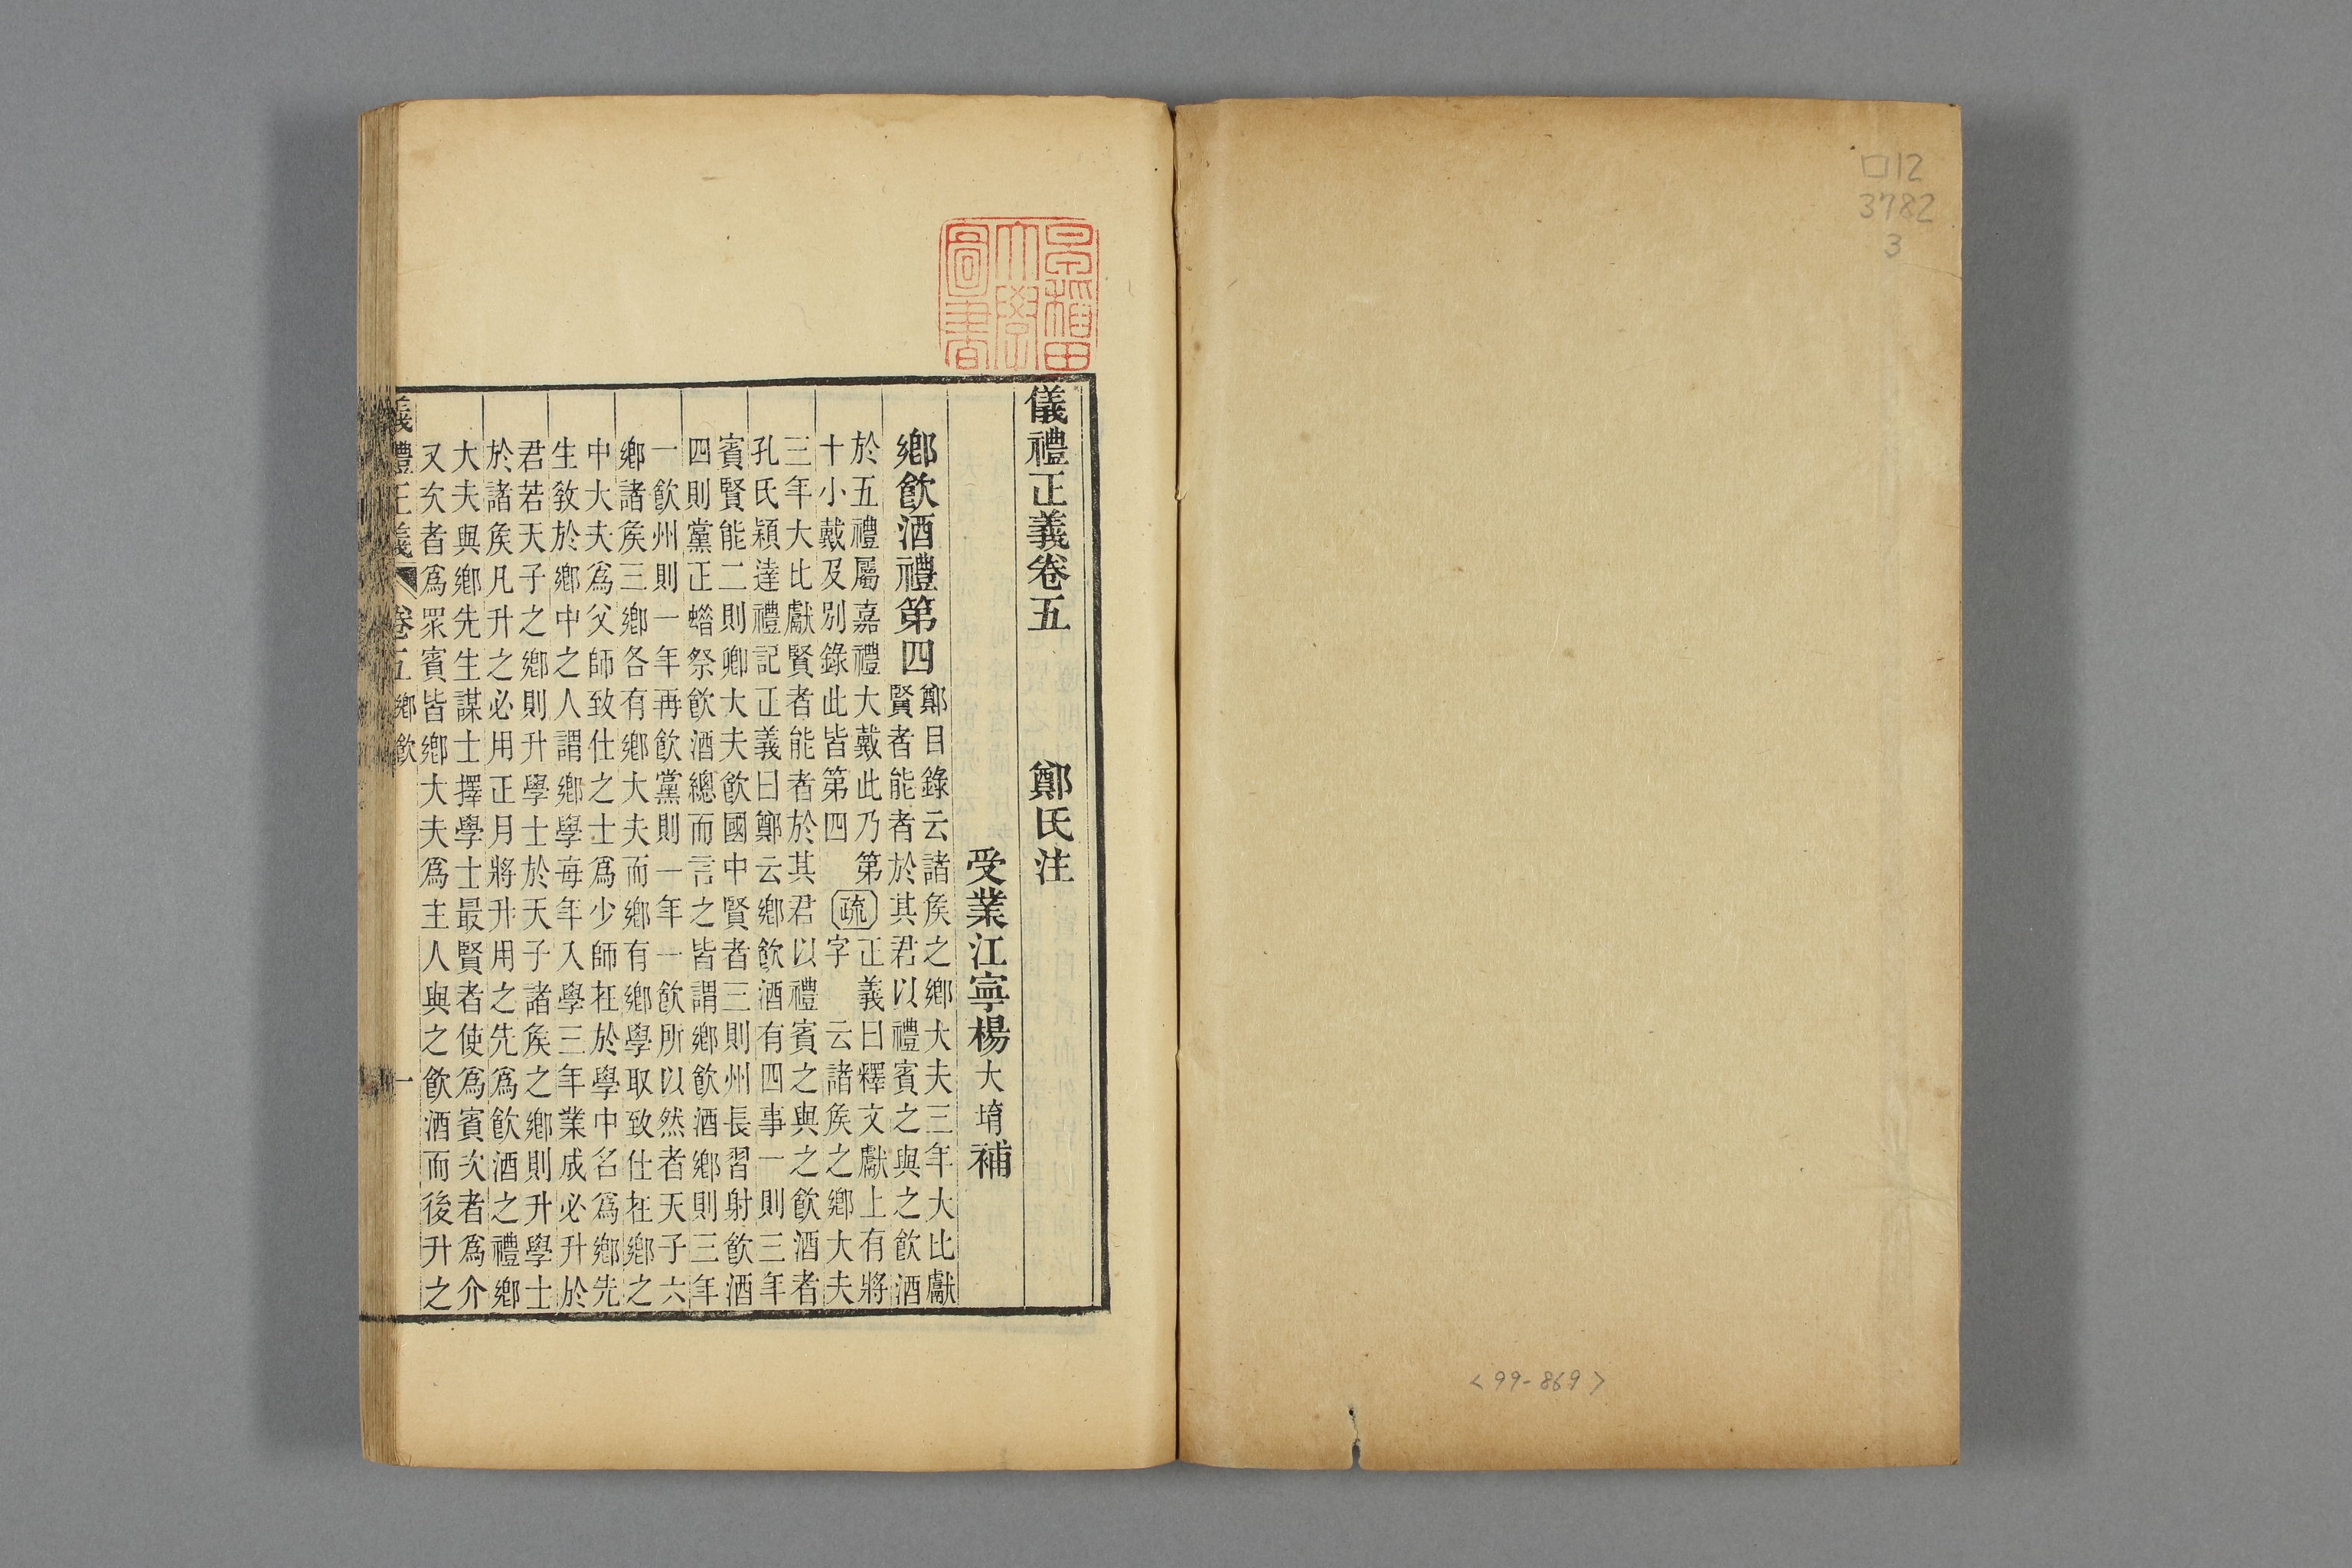 口12
3782
3
<99-869>
早稲田
大學
圖書
儀禮正義卷五 鄭氏注
受業江寧楊大堉補
鄉飲酒禮第四
鄭目錄云諸矦之鄉大夫三年大比獻
賢者能者於其君以禮賓之與之飲酒
於五禮屬嘉禮大戴此乃第
十小戴及別錄此皆第四
疏
正義曰釋文獻上有將
字 云諸矦之鄉大夫
三年大比獻賢者能者於其君以禮賓之與之飲酒者
孔氏穎達禮記正義曰鄭云鄉飲酒有四事一則三年
賓賢能二則鄉大夫飲國中賢者三則州長習射飲酒
四則黨正蜡祭飲酒總而言之皆謂鄉飲酒鄉則三年
一飲州則一年再飲黨則一年一飲所以然者天子六
鄉諸矦三鄉各有鄉大夫而鄉有鄉學取致仕在鄉之
中大夫爲父師致仕之士爲少師在於學中名爲鄉先
生教於鄉中之人謂鄉學每年入學三年業成必升於
君若天子之鄉則升學士於天子諸矦之鄉則升學士
於諸矦凡升之必用正月將升用之先爲飲酒之禮鄉
大夫與鄉先生謀士擇學士最賢者使爲賓次者爲介
又次者爲眾賓皆鄉大夫爲主人與之飲酒而後升之
儀禮正義 卷五鄉飲 一